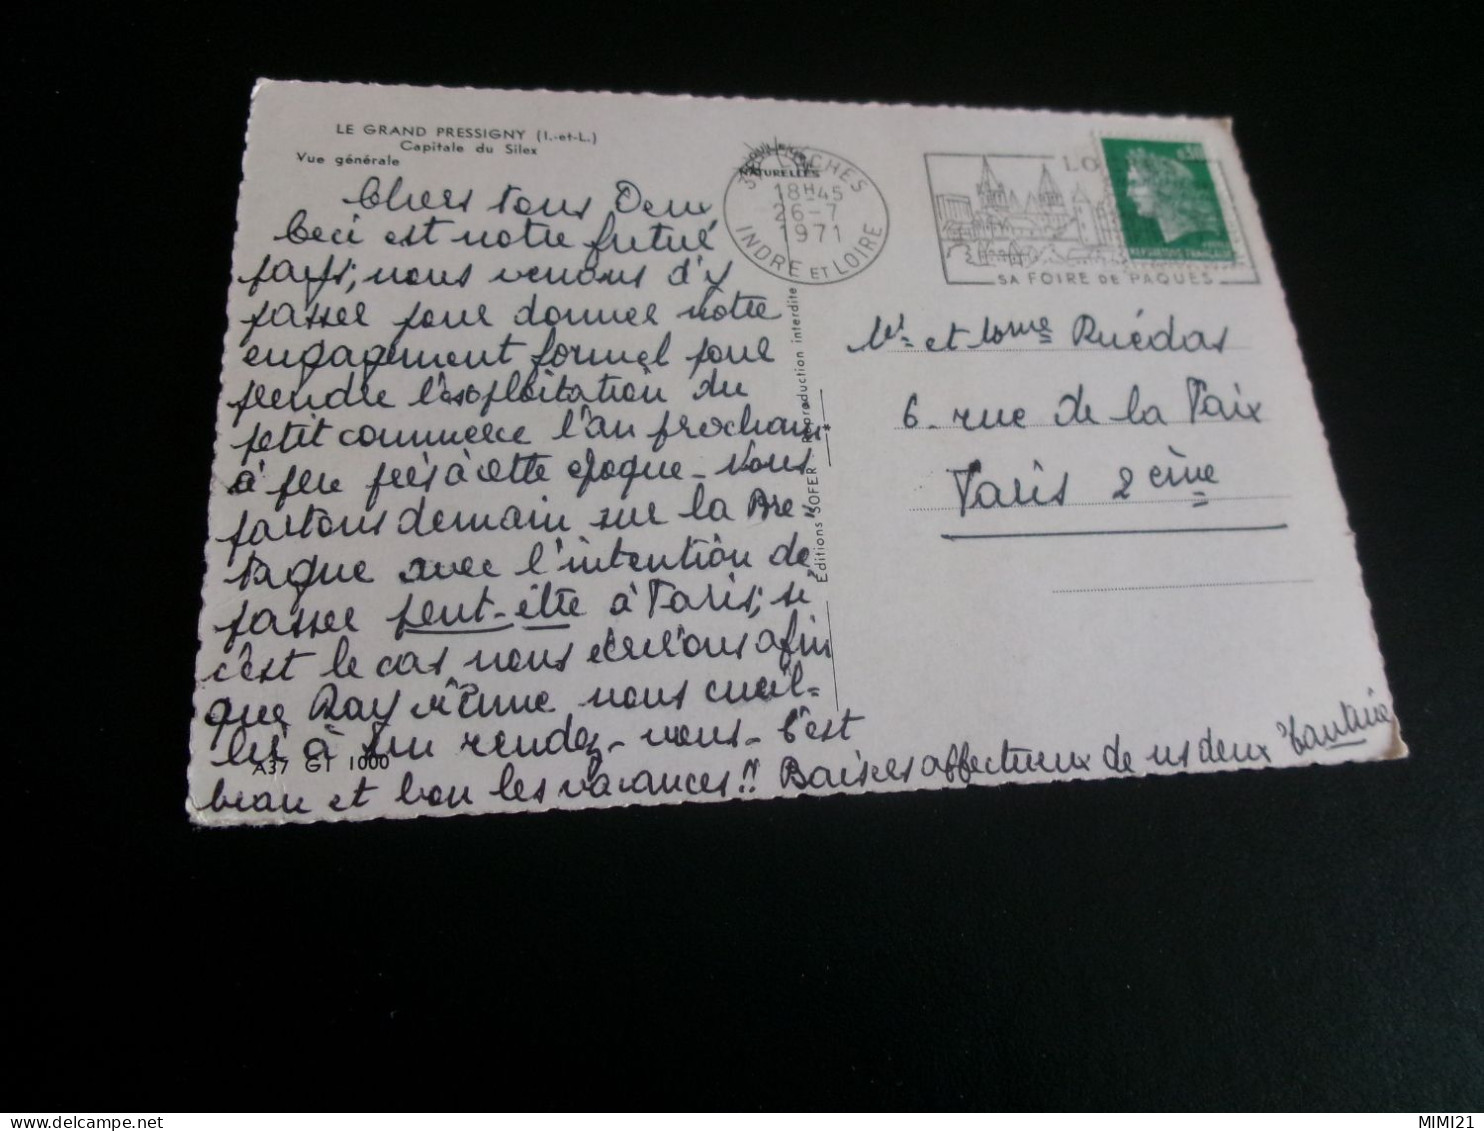 LE GRAND PRESSIGNY (I.-et-L.)
Capitale du Silex
Vue générale
Chers tous Deux,
Ceci est notre futur
pays; nous venons d'y
passer pour donner notre
engagement formel pour
prendre l'exploitation du
petit commerce l'an prochain
à peu près à cette époque - Nous
partons demain sur la Bre"
tagne avec l'intention de
passer peut-être à Paris; si
c'est le cas nous écrirons afin
que Ray vienne nous cueil-
lir à un rendez-vous - C'est
beau et bon les vacances!! Baisers affectueux de ns deux Tantine
A37 GT 1000
COULEURS NATURELLES
Editions SOFER - Reproduction interdite
37 LOCHES
18H45
26-7
1971
INDRE ET LOIRE
LO
SA FOIRE DE PAQUES
0,30
REPUBLIQUE FRANÇAISE
Mr et Mme Ruédas
6 - rue de la Paix
Paris 2 ème
MIMI21